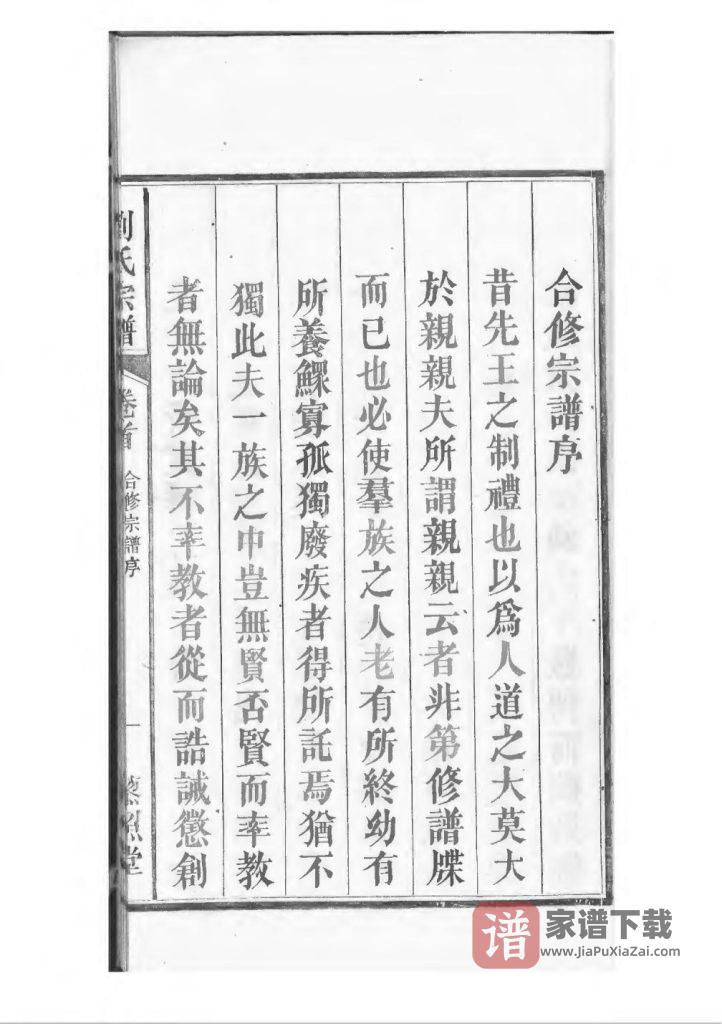 合修宗譜序
昔先王之制禮也以爲人道之大莫大
於親親夫所謂親親云者非第修譜牒
而已也必使羣族之人老有所終幼有
所養鰥寡孤獨廢疾者得所託焉猶不
獨此夫一族之中豈無賢否賢而率教
者無論矣其不率教者從而誥誡懲創
劉氏宗譜
卷首 合修宗譜序
一
照堂
谱 家谱下载
www.JiaPuXiaZai.com